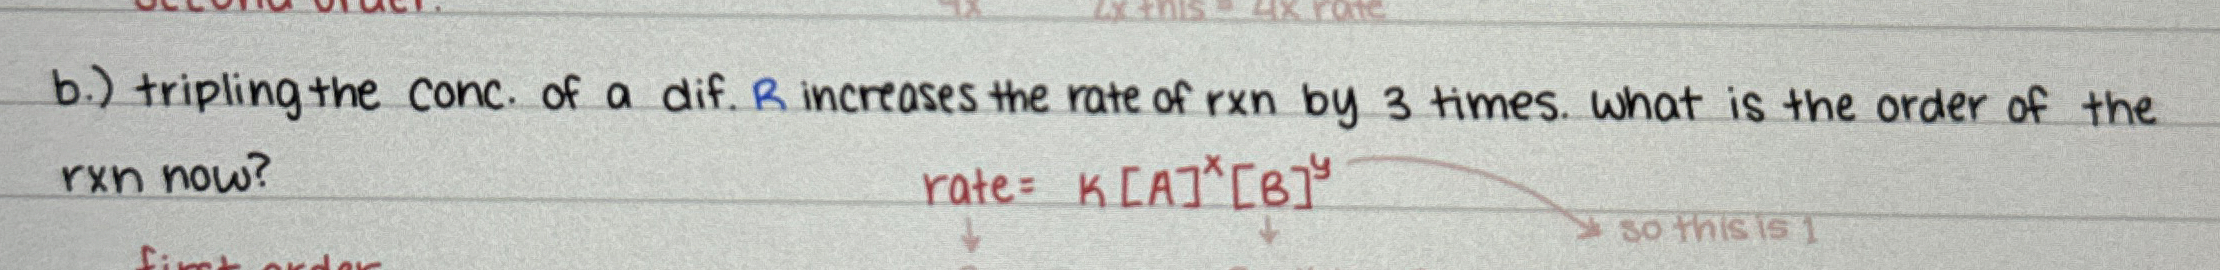 second order.
4x 2x this = 4x rate
b.) tripling the conc. of a dif. R increases the rate of rxn by 3 times. what is the order of the
rxn now?
rate = K[A]ˣ[B]ʸ
↓ ↓ → so this is 1
first order